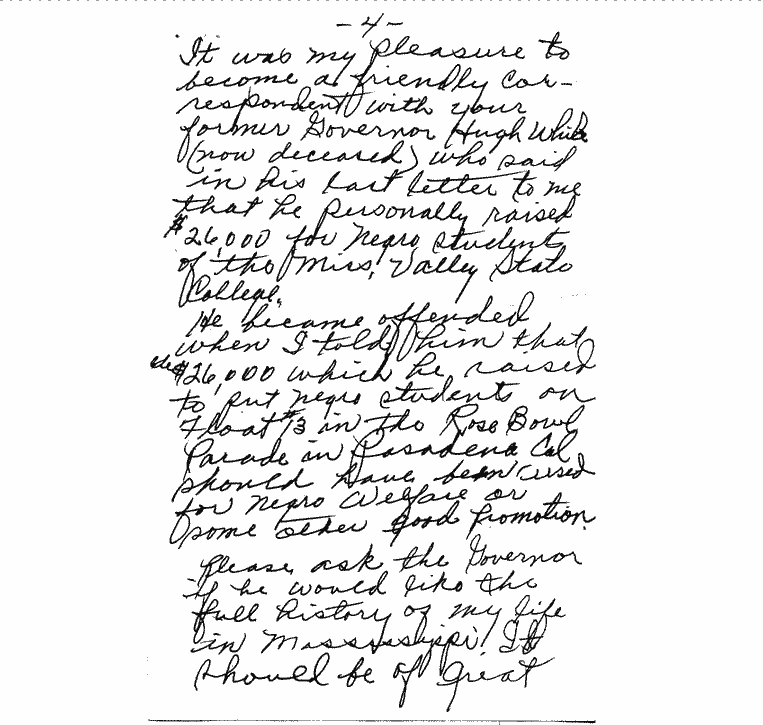 -4-
It was my pleasure to
become a friendly cor-
respondent with your
former Governor Hugh White
(now deceased) who said
in his last letter to me
that he personally raised
$26,000 for Negro students
of the Miss. Valley State
College.
He became offended
when I told him that
the $26,000 which he raised
to put negro students on
Float #3 in the Rose Bowl
Parade in Pasadena Cal
should have been used
for negro Welfare or
some other good promotion.
Please ask the Governor
if he would like the
full history of my life
in Mississippi. It
should be of great